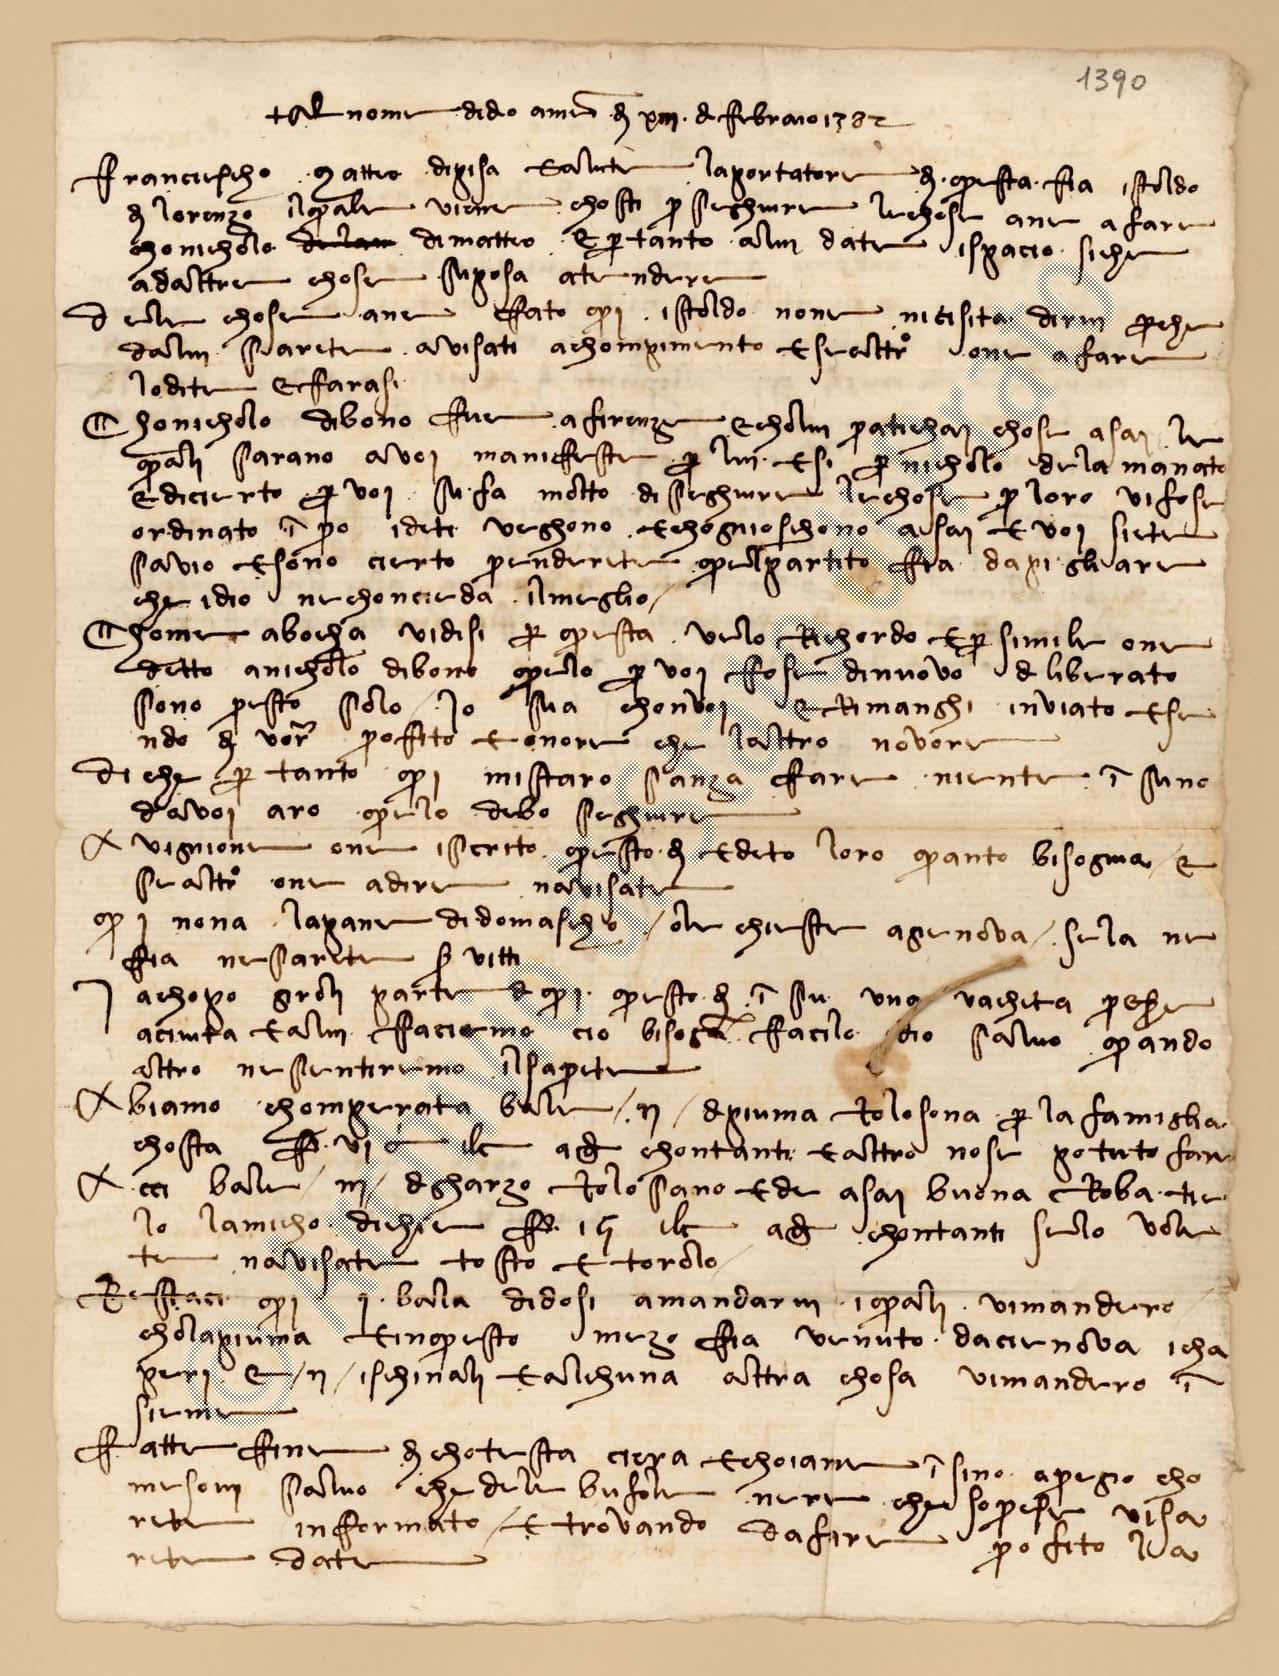 1390
+ Al nome di dio ame dì xiii di febraio 1382
Francischo Matteo di pisa salute laportatore di questa fia istoldo
di lorenzo ilquale viene chosti per seghuire lechose ane a fare
chonicholo dimatteo e pertanto alui date ispacio siche
adaltre chose suposa atendere
dele chose ane fato qui istoldo none nicisita dirvi perche
dalui sarete avisati achompimento e sealtro one afare
lodite e farasi
Chonicholo dibono fue afirenze echolui praticai chose asai le
quali sarano avoi manifeste per lui esi per nicholo dela manato
edicierto per voi su fa molto di seghuire lechose per loro vi fose
ordinato in po ideti veghono echognoschono asai e voi siete
savio esono cierto prenderete quelpartito fia dapigliare
che idio nechoncieda ilmeglio
Chome abocha vidisi per questa velo Richordo e per simile one
detto anicholo dibono quelo per voi fose dinuovo diliberato
sono presto solo Io sia chonvoi e Rimanghi inviato ese
ndo di vostro profito e onore che laltro novore
di che per tanto qui mistaro sanza fare niente in sino
davoi aro quelo debo seghuire
A vignione one iscrito questo dì e deto loro quanto bisogna e
sealtro one adire navisate
qui nona lapane didomascho ole chieste agienova se la ne
fia nesarete serviti
Jachopo groli parte di qui questo dì in su una vachita per esere
aciuita e alui facciermo cio bisogna facilo dio salvo quando
altro nesentiremo ilsaprete
Abiamo chomperata bale ii di piuma tolosona per la famiglia
chosta f. vi ilc adi chontanti e altro nose potuto fare
A cci bale iii di gharzo tolosano e de asai buona Roba tie
lo lamicho dichie f. 15 ilc adi chontanti selo vole
te navisate tosto e torolo
Restaci qui j bala didosi amandarvi iquali vimandero
cholapiuma e inquesto mezo fia venuto dacienova icha
peri e ii ischinali e alchuna altra chosa vimandero in
sieme
Fatte fine di chotesta ciera e choiame in sino apregio cho
mesovi salvo che dele bufole nere che soprese visa
rete informato e trovando dafire profito lia
rete date